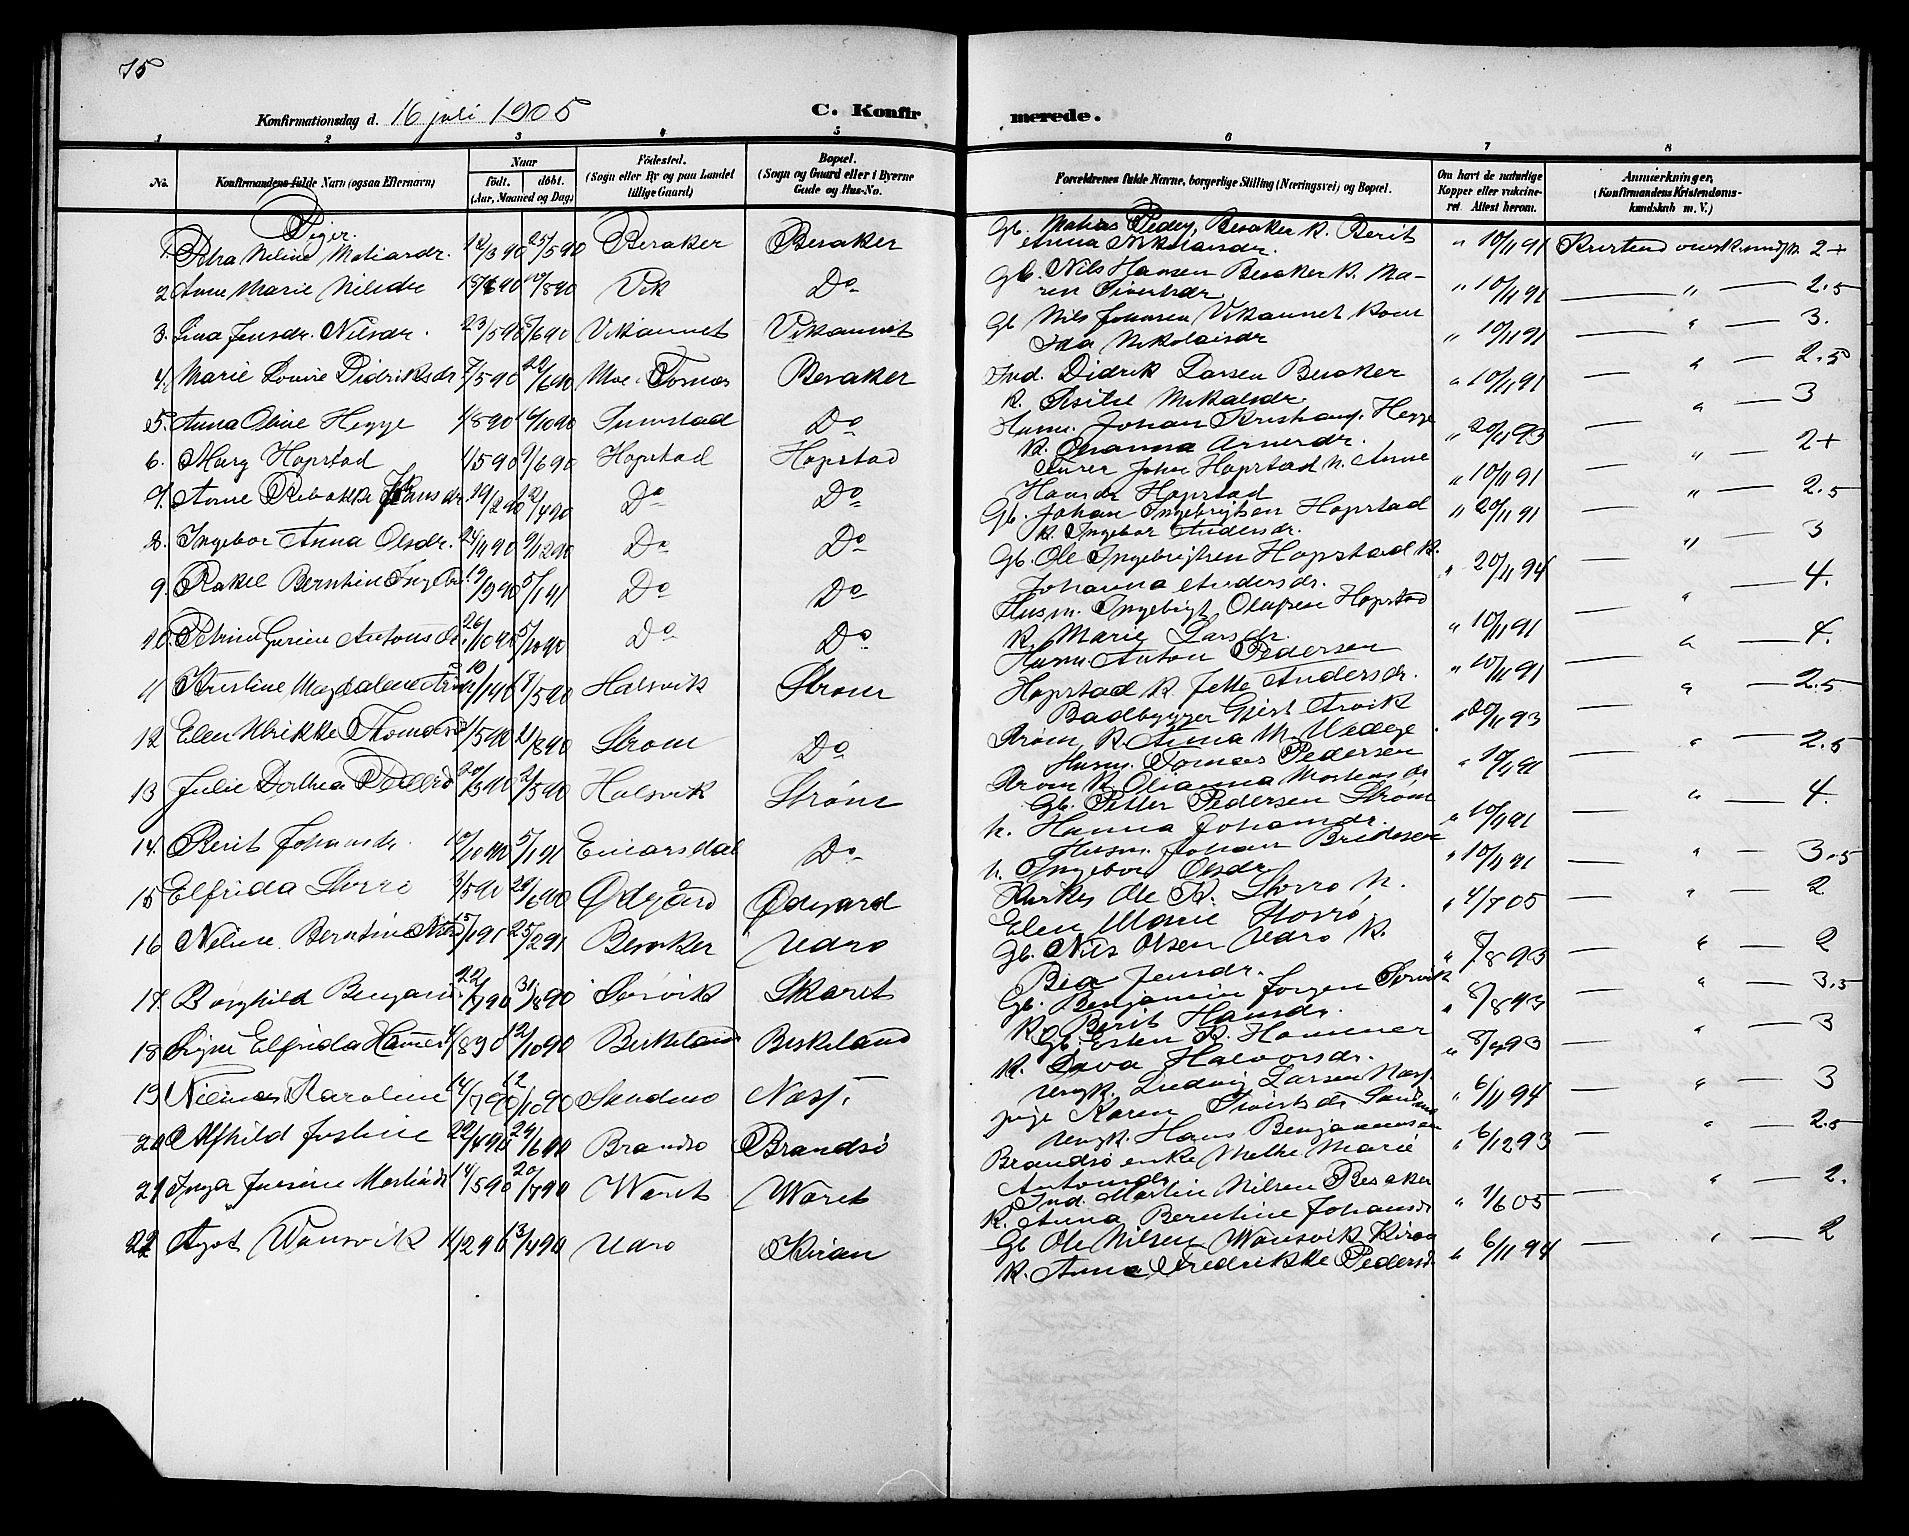 75
Konfirmationsdag d. 16 juli 1905
C. Konfirmerede.
1 2 3 4 5 6 7 8
No.
Konfirmandens fulde Navn (ogsaa Efternavn)
Naar
födt. döbt.
(Aar, Maaned og Dag)
Födested.
(Sogn eller By og paa Landet tillige Gaard)
Bopæl.
(Sogn og Gaard eller i Byerne Gade og Hus-No.
Forældrenes fulde Navne, borgerlige Stilling (Næringsvei) og Bopæl.
Om havt de naturlige Kopper eller vakcineret. Attest herom.
Anmærkninger,
(Konfirmandens Kristendomskundskab m. V.)
Piger.
1. Petra Meline Matiasdr. 12/3 90 25/5 90 Besaker Besaker Gb. Matias Peders, Besaker k. Berit Anna Nikolaisdr. " 10/11 91 2+
2 Anne Marie Nilsdr 10/8 90 Vik Do Gb. Nils Hansen Besaker k. Maren Sivertsdr " 10/11 91 — " — 2.5
3. Lina Jensdr. Nilsdr. 23/5 90 8/6 90 Vikannet Vikannet Gb Nils Johnsen Vikannet Kone Ida Nikolaisdr " 10/11 91 — " — 3.
4. Marie Lovise Didriksdr 7/5 90 22/6 90 Moe Tornes Besaker Ind. Didrik Larsen Besaker k. Nikolaisdr " 10/11 91 — " — 2.5
5. Anna Oline Hegge 1/8 90 16/10 90 Sumstad Do Husm. Johan Kristians. Hegge k. Oleanna Arnesdr. " 20/11 93 — " — 3
6. Mary Hopstad 1/5 90 9/6 90 Hopstad Hopstad John Hopstad h. Anne Hansdr Hopstad " 10/11 91 — " — 2+
7. Anne Rebekka Johansdr 12/4 90 Do Do Gb. Johan Ingebrigtsen Hopstad k. Ingebor Andersdr. " 20/11 91 — " — 2.5
8. Ingebor Anna Olsdr. 24/11 90 9/12 90 Do Do Gb. Ole Ingebrigtsen Hopstad k. Johanna Andersdr. " 20/11 94 — " — 3
9. Rakel Berntine Ingebr 19/9 90 5/1 91 Do Do Husm. Ingebrigt Olufsen Hopstad k. Marie Larsdr. " 10/11 91 — " — 4.
10. Petrine Gurine Antonsdr. 5/10 90 Do Do Husm. Anton Pedersen Hopstad k. Jette Andersdr. " 10/11 91 — " — 4.
11 Kristine Magdalene Halsvik Strøm Baadbygger Gjert Arvik Strøm k. Anna M. Wedege " 20/11 93 — " — 2.5
12 Elen Ulrikke Thomasdr 1/5 90 21/8 90 Strøm Do Husm. Tomas Pedersen Strøm k. Olianna Mortensdr " 10/11 91 — " — 2.5
13 Julie Dorthea Pedersd 2/5 90 Halsvik Strøm Gb. Petter Pedersen Strøm h. Hanna Johansdr. " 10/11 91 — " — 4.
14. Berit Johansdr. 5/1 91 Einarsdal Do Husm. Johan h. Ingebor Olsdr " 10/11 91 — " — 3.5
15 Elfrida Storrø 3/5 90 29/6 90 Ødegård Ødegård Ole K. Storrø h. Elen Marie Storrø " 4/7 05 — " — 2
16 Neline Berntine Nilsd 5/1 91 25/2 91 Besaker Udrø Gb. Nils Olsen Udrø k. Bia Jensdr. " 8/8 93 — " — 2
17. Borghild Benjam. 22/7 90 31/8 90 Sørvik Skaret Gb. Benjamin Jørgen Sørvik k. Berit Hansdr. " 8/8 93 — " — 3.5
18 Signe Elfrida Hammer 4/8 90 12/10 90 Birkeland Birkeland Gb. Esten K. Hammer k. Halvorsdr. " 8/8 93 — " — 3
19 Karoline 14/7 90 12/10 90 Sandmo Næsj. Ungk. Ludvig Larsen Næsj. pige Karen Sivertsdr " 6/11 94 — " — 3
20 Alfhild Justine 29/6 90 Brandsø Brandsø Ungk. Hans Benjaminsen Brandsø enke Methe Marie Antonsdr " 6/12 93 — " — 2.5
21 Inga Jensine Martinsdr 14/5 90 20/7 90 Waret Waret Ind. Martin Nilsen Besaker k. Anna Berntine Johansdr " 1/6 05 — " — 2.
22 Agot Wansvik 11/2 90 13/4 90 Udrø Kiran Gb Ole Nilsen Wansvik Kiran k. Anna Fredrikke Pedersdr " 6/11 94 — " — 2